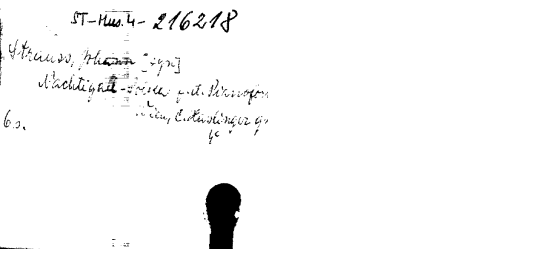 ST-Mus.4- 216218
Strauss, Johann [syn]
Nachtigall- f. d. Pianofor
Wien, C. Haslinger
4°
6 s.